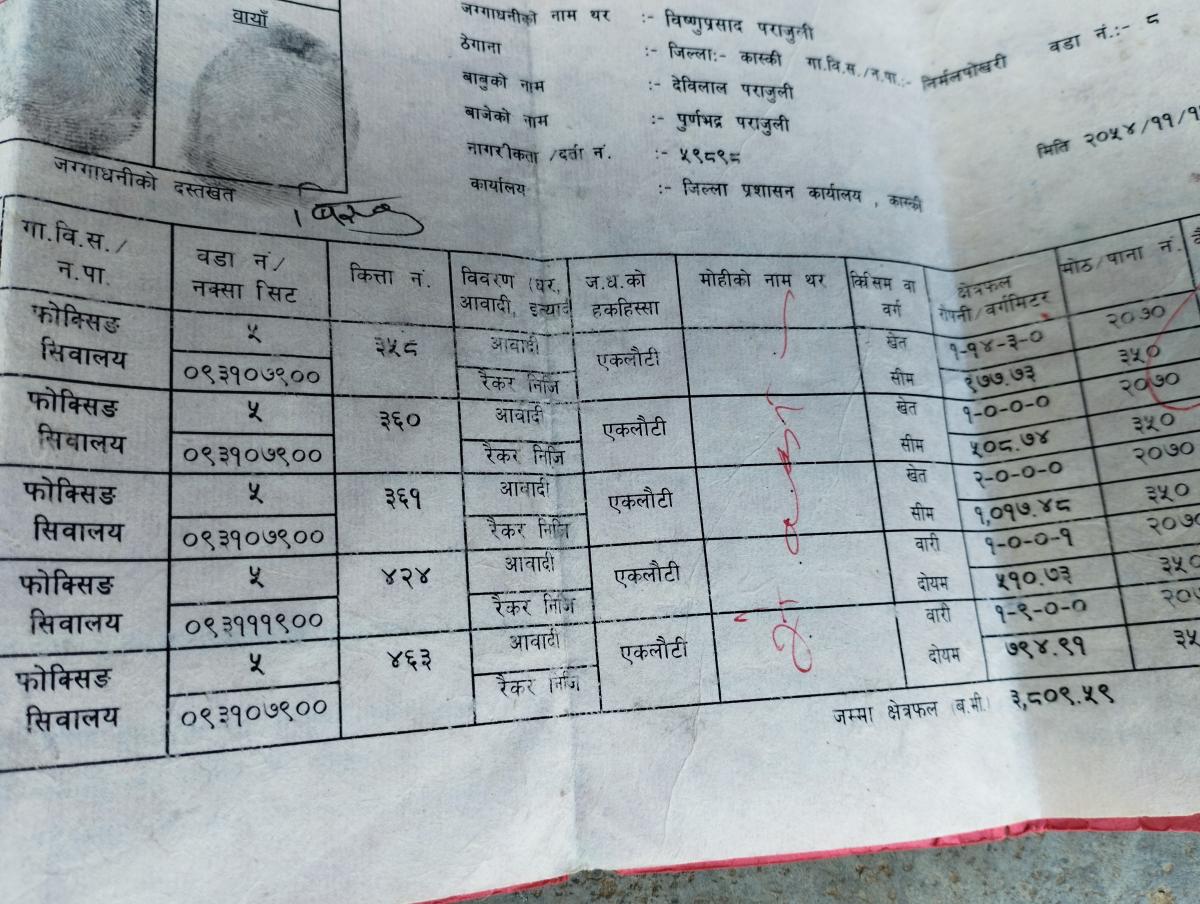 वायाँ
जग्गाधनीको दस्तखत
जग्गाधनीको नाम थर :- विष्णुप्रसाद पराजुली
ठेगाना :- जिल्ला:- कास्की गा.वि.स./न.पा.:- निर्मलपोखरी वडा नं.:- ८
बाबुको नाम :- देविलाल पराजुली
बाजेको नाम :- पुर्णभद्र पराजुली
मिति २०५४/११/१
नागरीकता /दर्ता नं. :- ५९८९८
कार्यालय :- जिल्ला प्रशासन कार्यालय , कास्की
गा.वि.स./ वडा नं/ कित्ता नं. विवरण (घर, ज.ध.को मोहीको नाम थर किसिम वा क्षेत्रफल मोठ/पाना नं.
न.पा. नक्सा सिट आवादी, इत्यादी हकहिस्सा वर्ग रोपनी/वर्गमिटर
फोक्सिङ ५ ३५८ आवादी एकलौटी खेत १-१४-३-० २०७०
सिवालय ०९३१०७९०० रैकर निजि सीम ९७७.७३ ३५०
फोक्सिङ ५ ३६० आवादी एकलौटी खेत १-०-०-० २०७०
सिवालय ०९३१०७९०० रैकर निजि सीम ५०८.७४ ३५०
फोक्सिङ ५ ३६१ आवादी एकलौटी खेत २-०-०-० २०७०
सिवालय ०९३१०७९०० रैकर निजि सीम १,०१७.४८ ३५०
फोक्सिङ ५ ४२४ आवादी एकलौटी वारी १-०-०-१ २०७०
सिवालय ०९३१११९०० रैकर निजि दोयम ५१०.७३ ३५०
फोक्सिङ ५ ४६३ आवादी एकलौटी वारी १-९-०-० २०७
सिवालय ०९३१०७९०० रैकर निजि दोयम ७९४.९१ ३५
जम्मा क्षेत्रफल (ब.मी.) ३,८०९.५९